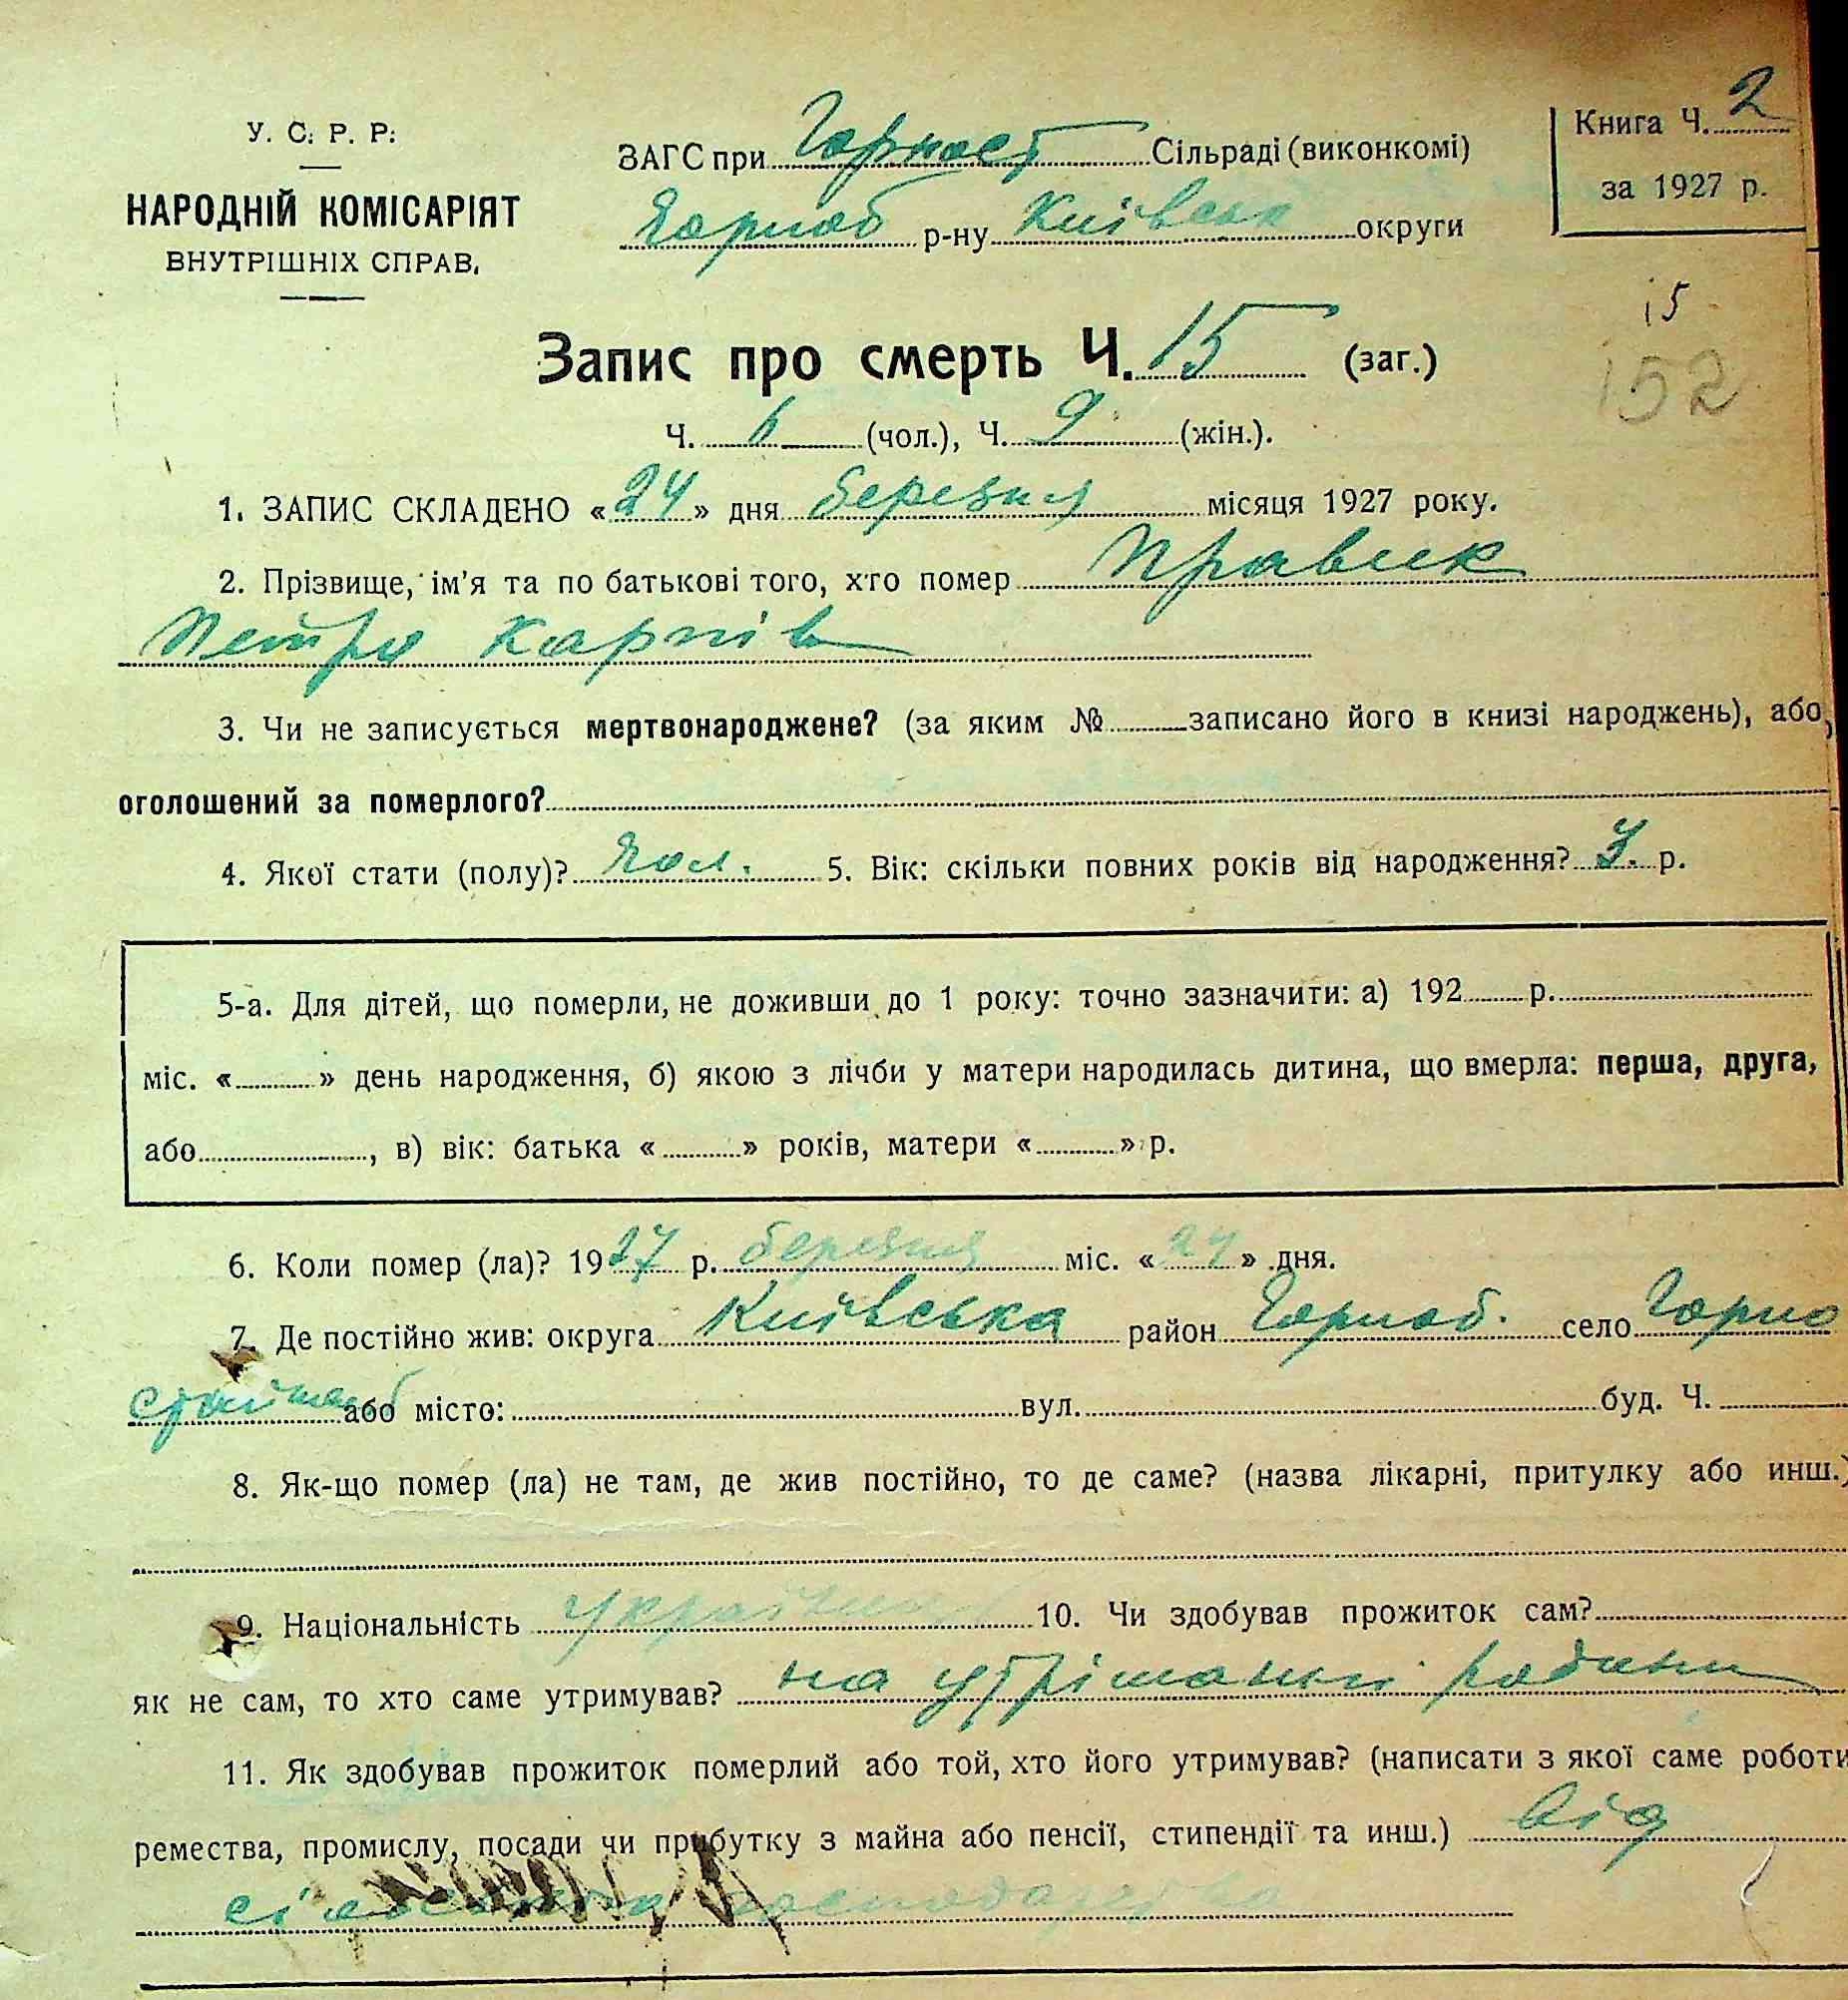 У. С. Р. Р.
НАРОДНІЙ КОМІСАРІЯТ
ВНУТРІШНІХ СПРАВ.
ЗАГС при Горност Сільраді (виконкомі)
Чорноб р-ну Київськ округи
Книга Ч. 2
за 1927 р.
15
152
Запис про смерть Ч. 15 (заг.)
Ч. 6 (чол.), Ч. 9 (жін.).
1. ЗАПИС СКЛАДЕНО «24» дня березня місяця 1927 року.
2. Прізвище, ім'я та по батькові того, хто помер Правик
Петро Карпів
3. Чи не записується мертвонароджене? (за яким № записано його в книзі народжень), або,
оголошений за померлого?
4. Якої стати (полу)? Чол. 5. Вік: скільки повних років від народження? р.
5-а. Для дітей, що померли, не доживши до 1 року: точно зазначити: а) 192 р.
міс. « » день народження, б) якою з лічби у матери народилась дитина, що вмерла: перша, друга,
або , в) вік: батька « » років, матери « » р.
6. Коли помер (ла)? 1927 р. березня міс. «24» дня.
7. Де постійно жив: округа Київська район Чорноб. село Горно
стайпаль або місто: вул. буд. Ч.
8. Як-що помер (ла) не там, де жив постійно, то де саме? (назва лікарні, притулку або инш.)
9. Національність Українець 10. Чи здобував прожиток сам?
як не сам, то хто саме утримував? на утріманні родини
11. Як здобував прожиток померлий або той, хто його утримував? (написати з якої саме роботи
ремества, промислу, посади чи прибутку з майна або пенсії, стипендії та инш.) від
сільського господарства